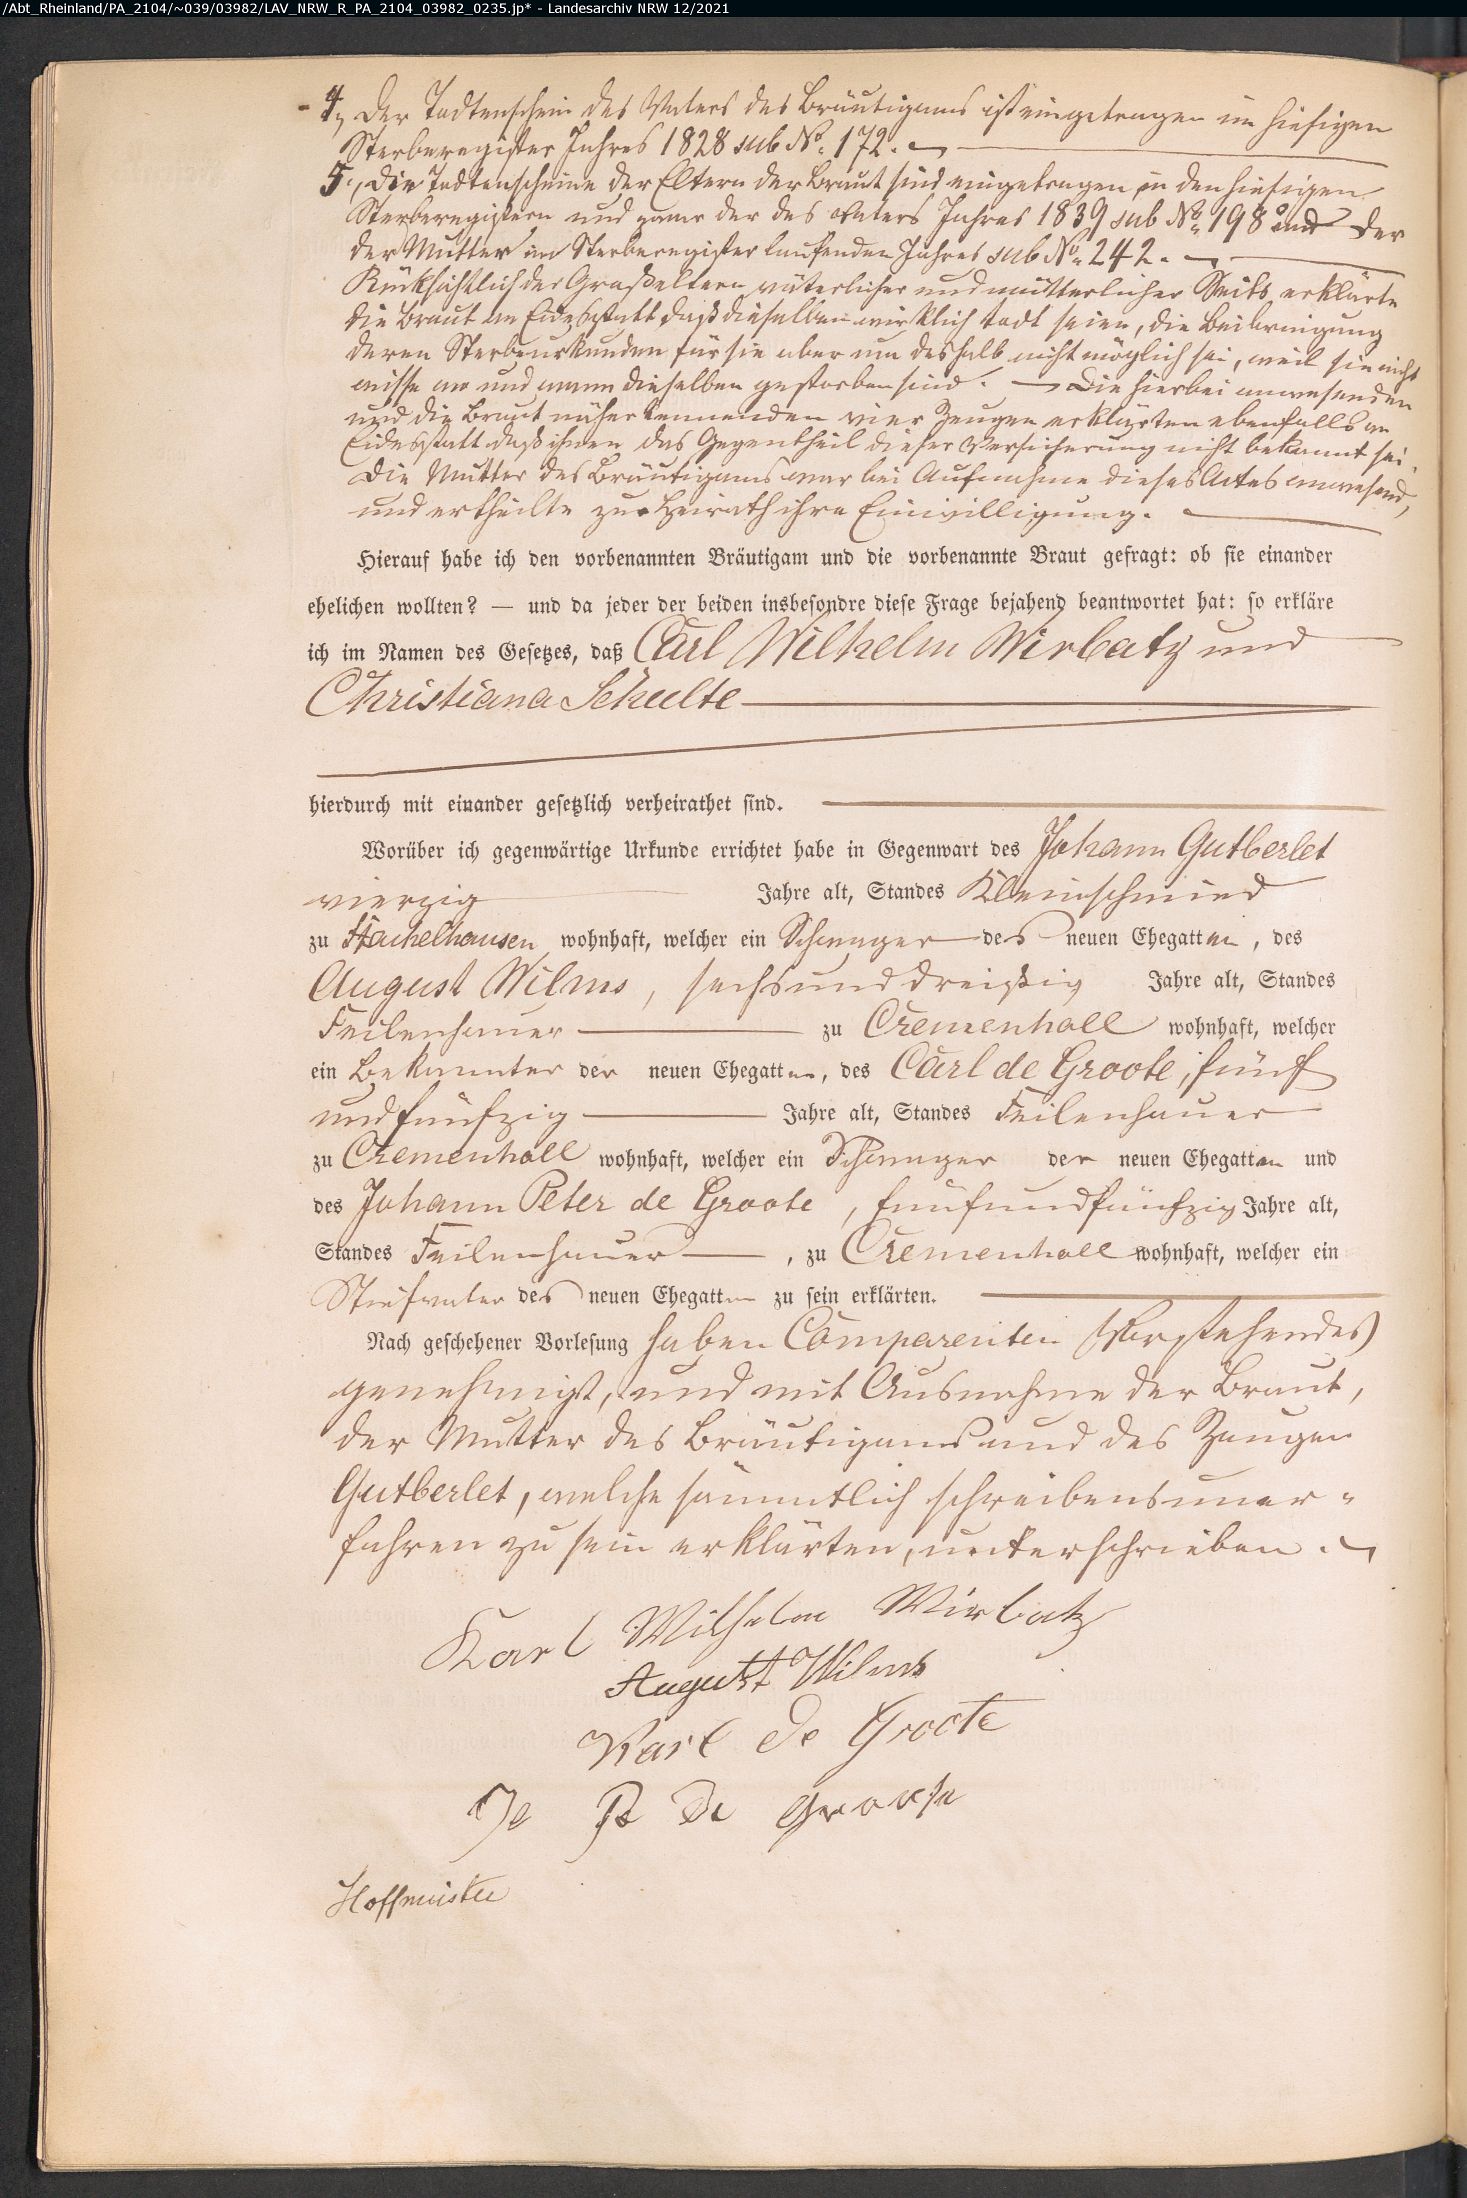 /Abt_Rheinland/PA_2104/~039/03982/LAV_NRW_R_PA_2104_03982_0235.jp* - Landesarchiv NRW 12/2021
4, Der Todtenschein des Vaters des Bräutigams ist eingetragen im hiesigen
Sterberegister Jahres 1828 sub No. 172. —
5., Die Todtenscheine der Eltern der Braut sind eingetragen in den hiesigen
Sterberegistern und zwar der des Vaters Jahres 1839 sub No. 198 und der
der Mutter im Sterberegister laufenden Jahres sub No. 242. —
Rücksichtlich der Großeltern väterlicher und mütterlicher Seits erklärte
die Braut an Eidesstatt daß dieselben wirklich todt seien, die Beibringung
deren Sterbeurkunden für sie aber um deshalb nicht möglich sei, weil sie nicht
wisse wo und wann dieselben gestorben sind. — Die hierbei anwesenden
und die Braut näher kennenden vier Zeugen erklärten ebenfalls an
Eidesstatt daß ihnen das Gegentheil dieser Versicherung nicht bekannt sei.
Die Mutter des Bräutigams war bei Aufnahme dieses Actes anwesend,
und ertheilte zur Heirath ihre Einwilligung. —
Hierauf habe ich den vorbenannten Bräutigam und die vorbenannte Braut gefragt: ob sie einander
ehelichen wollten? — und da jeder der beiden insbesondre diese Frage bejahend beantwortet hat: so erkläre
ich im Namen des Gesetzes, daß Carl Wilhelm Wirbatz und
Christiana Schulte
hierdurch mit einander gesetzlich verheirathet sind.
Worüber ich gegenwärtige Urkunde errichtet habe in Gegenwart des Johann Gutberlet
vierzig Jahre alt, Standes Kleinschmied
zu Hachelhausen wohnhaft, welcher ein Schwager des neuen Ehegatten, des
August Wilms, sechsunddreißig Jahre alt, Standes
Feilenhauer zu Cremenholl wohnhaft, welcher
ein Bekannter der neuen Ehegatten, des Carl de Groote, fünf
undfünfzig Jahre alt, Standes Feilenhauer
zu Cremenholl wohnhaft, welcher ein Schwager der neuen Ehegatten und
des Johann Peter de Groote, fünfundfünfzig Jahre alt,
Standes Feilenhauer, zu Cremenholl wohnhaft, welcher ein
Stiefvater des neuen Ehegatten zu sein erklärten.
Nach geschehener Vorlesung haben Comparenten Vorstehendes
genehmigt, und mit Ausnahme der Braut,
der Mutter des Bräutigams und des Zeugen
Gutberlet, welche sämmtlich schreibensuner-
fahren zu sein erklärten, unterschrieben. —
Karl Wilhelm Wirbatz
August Wilms
Karl de Groote
Jo Pe de Groote
Hoffmeister